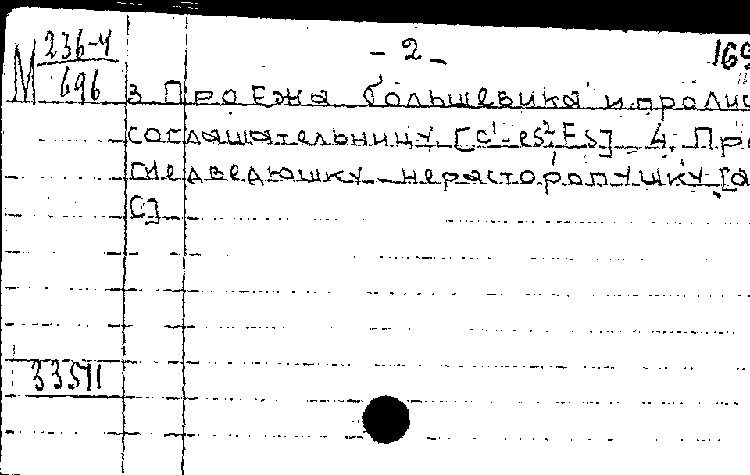 М 236-4/696
- 2 -
169
3 Про Ежа большевика и про Лис
соглашательницу [c¹-es². Es] 4. Пр
медведюшку нерасторопушку [a
c]
33511